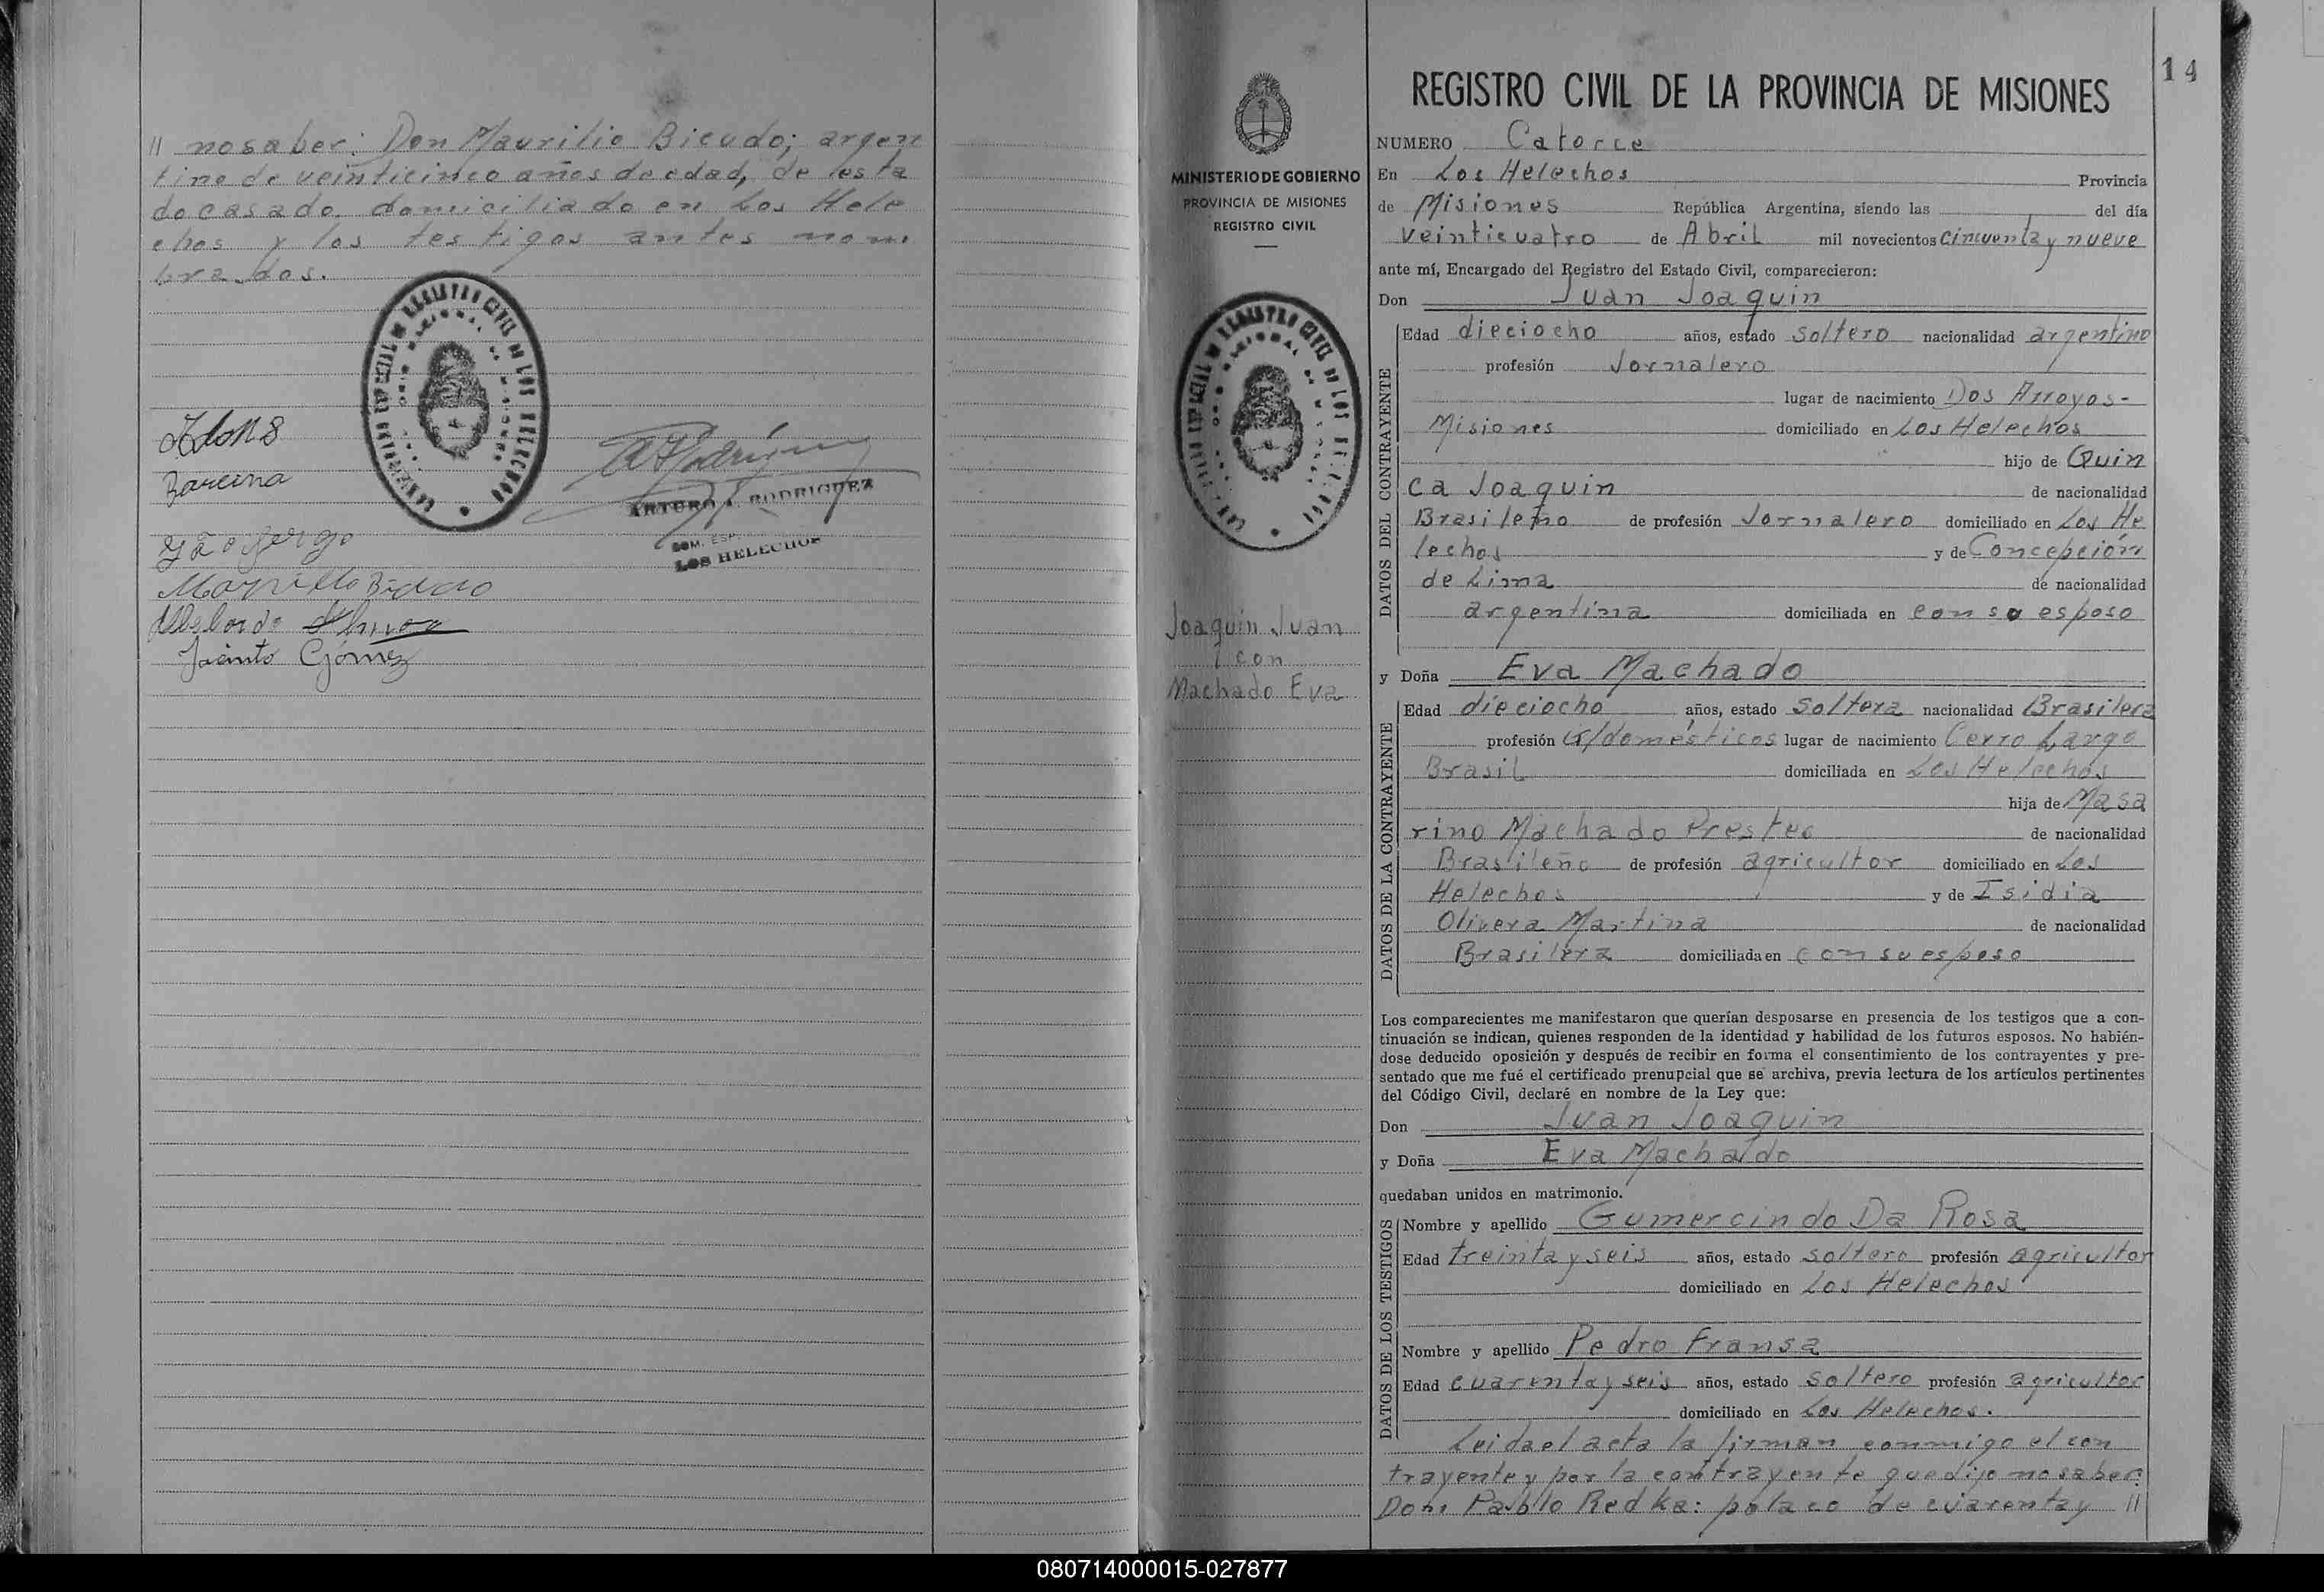 // no saber: Don Maurilio Bicudo; argen
tino de veinticinco años de edad, de esta
do casado, domiciliado en Los Hele
chos y los testigos antes nom
brados.
Barcina
ARTURO A. RODRIGUEZ
LOS HELECHOS
Jacinto Gómez
14
REGISTRO CIVIL DE LA PROVINCIA DE MISIONES
MINISTERIO DE GOBIERNO
PROVINCIA DE MISIONES
REGISTRO CIVIL
Joaquin Juan
con
Machado Eva
NUMERO Catorce
En Los Helechos Provincia
de Misiones República Argentina, siendo las del día
veinticuatro de Abril mil novecientos cincuenta y nueve
ante mí, Encargado del Registro del Estado Civil, comparecieron:
Don Juan Joaquin
DATOS DEL CONTRAYENTE
Edad dieciocho años, estado soltero nacionalidad argentino
profesión Jornalero
lugar de nacimiento Dos Arroyos-
Misiones domiciliado en Los Helechos
hijo de Quin
ca Joaquin de nacionalidad
Brasileño de profesión Jornalero domiciliado en Los He
lechos y de Concepción
de Lima de nacionalidad
argentina domiciliada en con su esposo
y Doña Eva Machado
DATOS DE LA CONTRAYENTE
Edad dieciocho años, estado Soltera nacionalidad Brasilera
profesión Q/domésticos lugar de nacimiento Cerro Largo
Brasil domiciliada en Los Helechos
hija de Masa
rino Machado Prestes de nacionalidad
Brasileño de profesión agricultor domiciliado en Los
Helechos y de Isidia
Olivera Martina de nacionalidad
Brasilera domiciliada en con su esposo
Los comparecientes me manifestaron que querían desposarse en presencia de los testigos que a con-
tinuación se indican, quienes responden de la identidad y habilidad de los futuros esposos. No habién-
dose deducido oposición y después de recibir en forma el consentimiento de los contrayentes y pre-
sentado que me fué el certificado prenupcial que se archiva, previa lectura de los artículos pertinentes
del Código Civil, declaré en nombre de la Ley que:
Don Juan Joaquin
y Doña Eva Machado
quedaban unidos en matrimonio.
DATOS DE LOS TESTIGOS
Nombre y apellido Gumercindo Da Rosa
Edad treinta y seis años, estado soltero profesión agricultor
domiciliado en Los Helechos
Nombre y apellido Pedro Fransa
Edad cuarenta y seis años, estado soltero profesión agricultor
domiciliado en Los Helechos.
Leida el acta la firman conmigo el con
trayente y por la contrayente que dijo no saber:
Don Pablo Redka: polaco de cuarenta y //
080714000015-027877